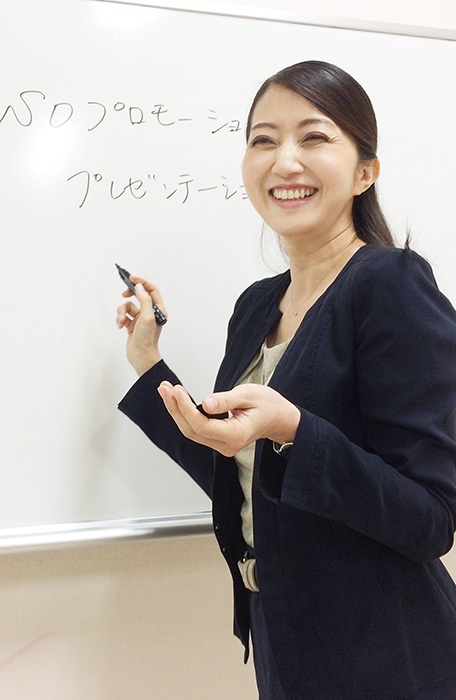 NSDプロモーショ
プレゼンテーショ